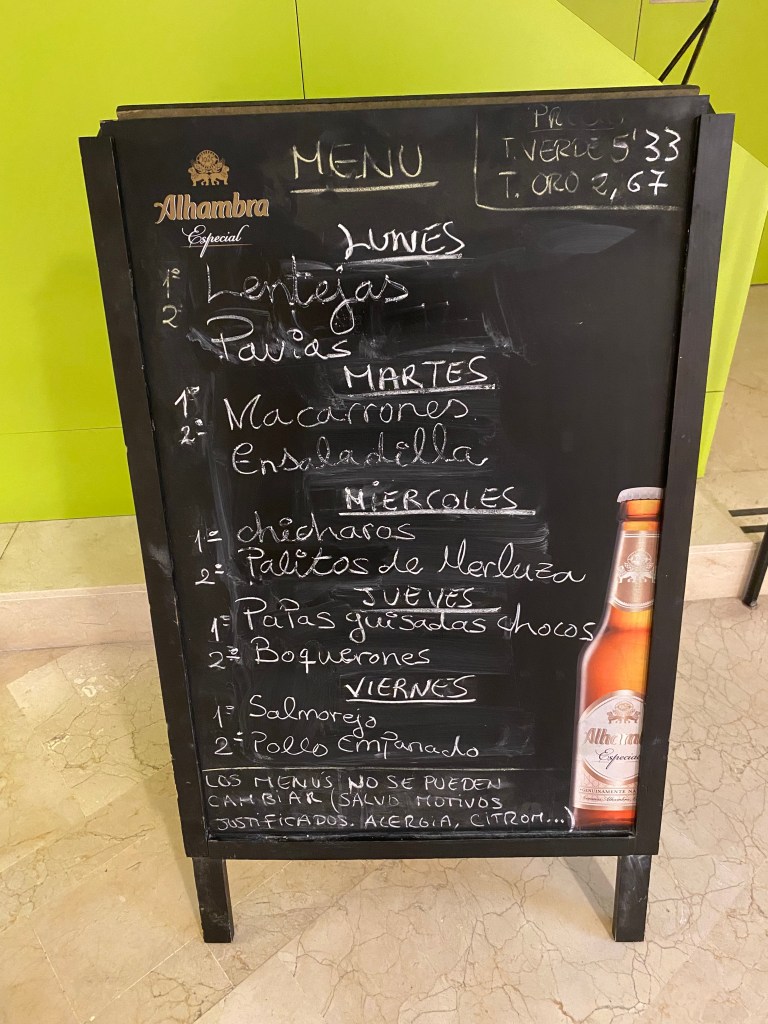 Alhambra
Especial
MENU
T. VERDE 5'33
T. ORO 2,67
LUNES
1º Lentejas
2º Pavias
MARTES
1º Macarrones
2º Ensaladilla
MIERCOLES
1º chicharos
2º Palitos de Merluza
JUEVES
1º Papas guisadas chocos
2º Boquerones
VIERNES
1º Salmorejo
2º Pollo empanado
LOS MENUS NO SE PUEDEN
CAMBIAR (SALVO MOTIVOS
JUSTIFICADOS. ALERGIA, CITROM...)
Alhambra
Especial